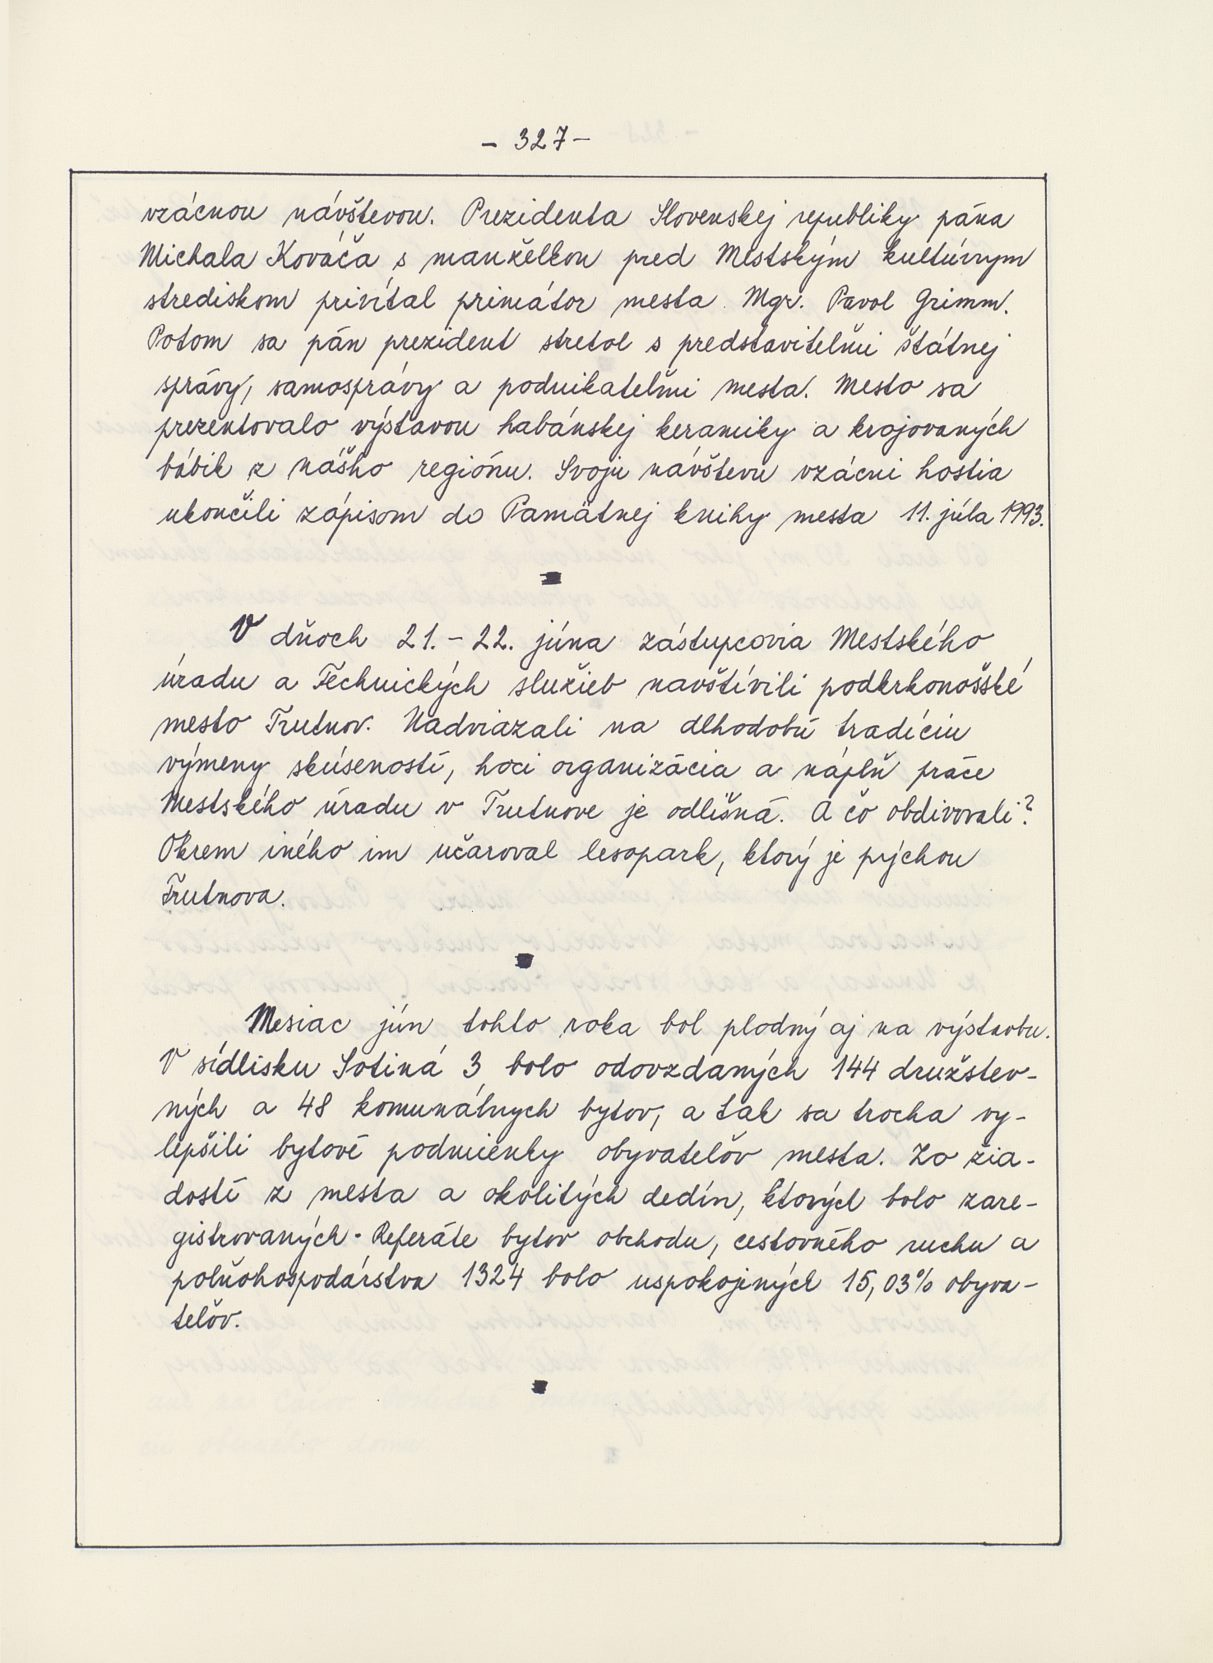 - 327 -
vzácnou návštevou. Prezidenta Slovenskej republiky pána
Michala Kováča s manželkou pred Mestským kultúrnym
strediskom privítal primátor mesta Mgr. Pavol Grimm.
Potom sa pán prezident stretol s predstaviteľmi štátnej
správy, samosprávy a podnikateľmi mesta. Mesto sa
prezentovalo výstavou habánskej keramiky a krojovaných
bábik z nášho regiónu. Svoju návštevu vzácni hostia
ukončili zápisom do Pamätnej knihy mesta 11. júla 1993.
V dňoch 21. - 22. júna zástupcovia Mestského
úradu a Technických služieb navštívili podkrkonošské
mesto Trutnov. Nadviazali na dlhodobú tradíciu
výmeny skúseností, hoci organizácia a náplň práce
Mestského úradu v Trutnove je odlišná. A čo obdivovali?
Okrem iného im učaroval lesopark, ktorý je pýchou
Trutnova.
Mesiac jún tohto roka bol plodný aj na výstavbu.
V sídlisku Sotiná 3 bolo odovzdaných 144 družstev-
ných a 48 komunálnych bytov, a tak sa trocha vy-
lepšili bytové podmienky obyvateľov mesta. Zo žia-
dostí z mesta a okolitých dedín, ktorých bolo zare-
gistrovaných - Referáte bytov obchodu, cestovného ruchu a
poľnohospodárstva 1324 bolo uspokojených 15,03% obyva-
teľov.